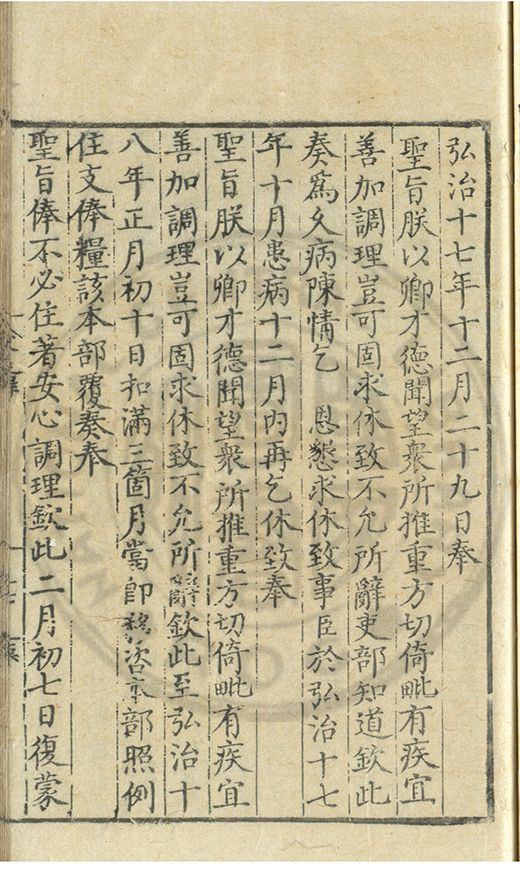 弘治十七年十二月二十九日奉
聖旨朕以卿才德聞望衆所推重方切倚毗有疾宜
善加調理豈可固求休致不允所辭吏部知道欽此
奏爲久病陳情乞　恩懇求休致事臣於弘治十七
年十月患病十二月內再乞休致奉
聖旨朕以卿才德聞望衆所推重方切倚毗有疾宜
善加調理豈可固求休致不允所辭欽此至弘治十
八年正月初十日扣滿三箇月當即移咨本部照例
住支俸糧該本部覆奏奉
聖旨俸不必住著安心調理欽此二月初七日復蒙